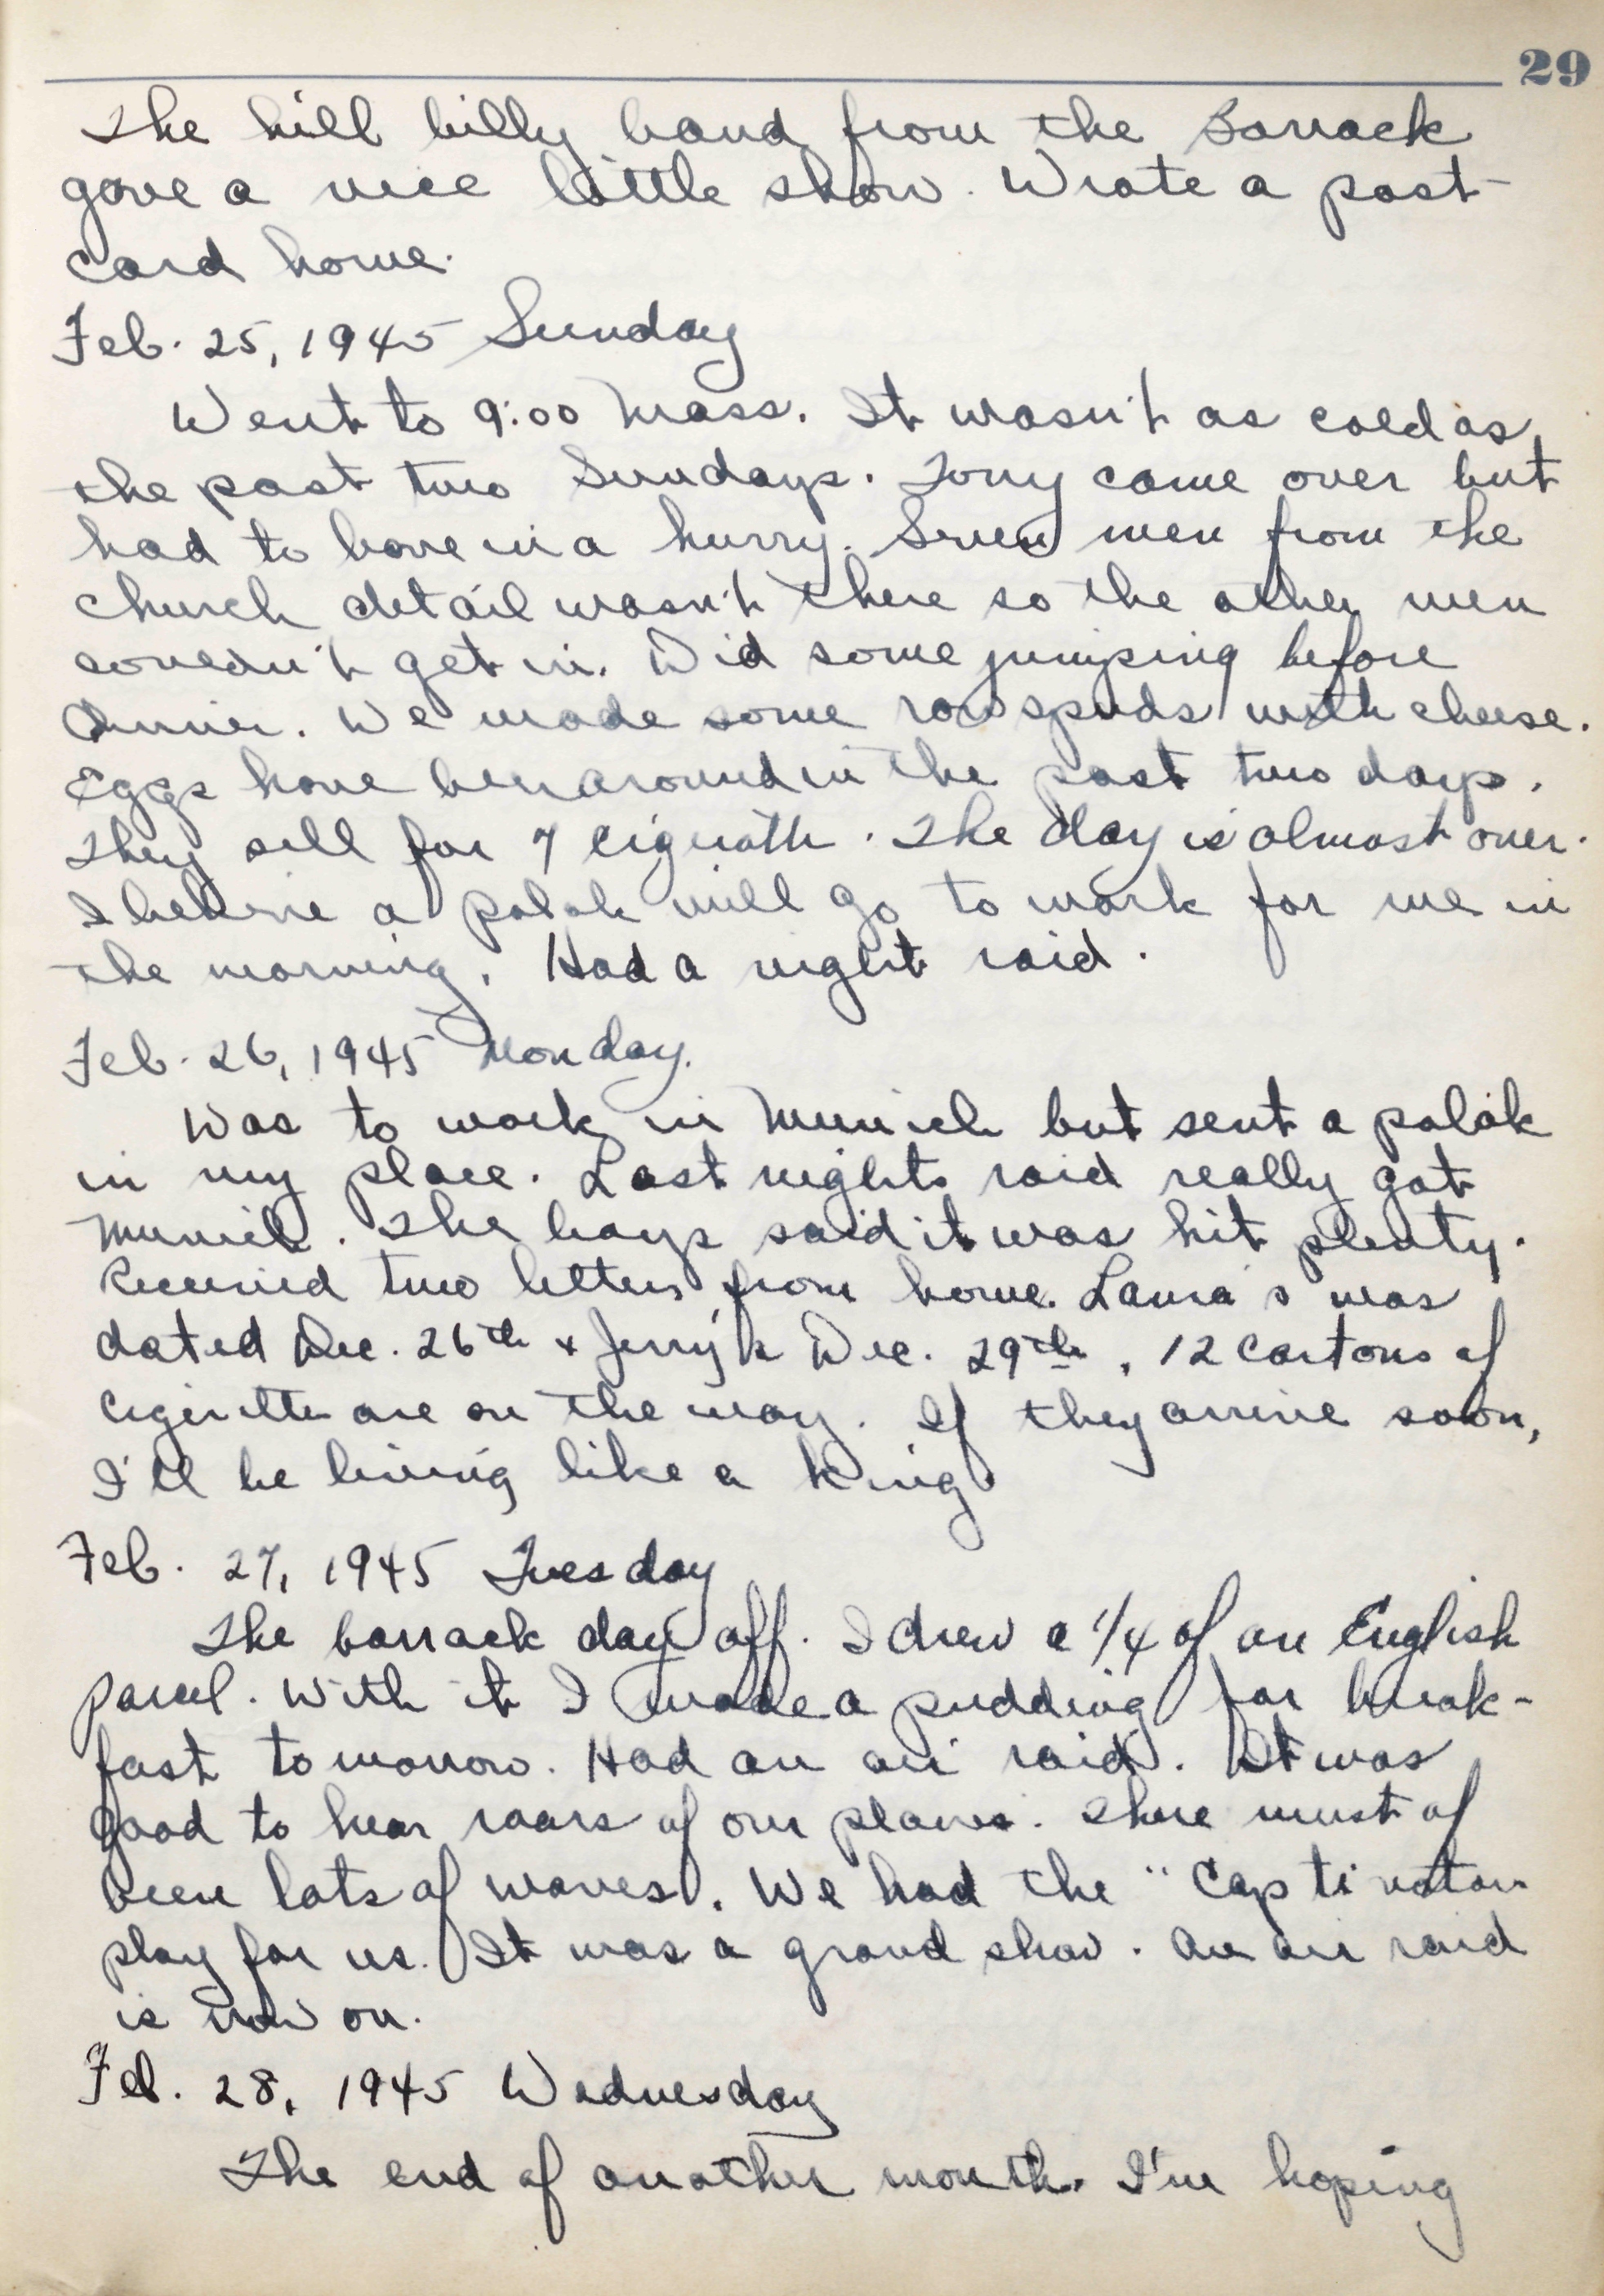 29
The hill billy band from the Barrack
gave a nice little show. Wrote a post-
card home.
Feb. 25, 1945 Sunday
Went to 9:00 Mass. It wasn't as cold as
the past two Sundays. Tony came over but
had to leave in a hurry. Seven men from the
church detail wasn't there so the other men
couldn't get in. Did some jumping before
dinner. We made some raw spuds with cheese.
Eggs have been around in the past two days.
They sell for 7 . The day is almost over.
I believe a polak will go to work for me in
the morning. Had a night raid.
Feb. 26, 1945 Monday.
Was to work in Munich but sent a polak
in my place. Last nights raid really got
Munich. The boys said it was hit plenty.
Received two letters from home. Laura's was
dated Dec. 26th & Jerry's Dec. 29th. 12 cartons of
are on the way. If they arrive soon,
I'll be living like a king.
Feb. 27, 1945 Tuesday
The barrack day off. I drew a 1/4 of an English
parcel. With it I made a pudding for break-
fast tomorrow. Had an air raid. It was
good to hear roars of our planes. There must of
been lots of waves. We had the "Captivators
play for us. It was a grand show. An air raid
is now on.
Feb. 28, 1945 Wednesday
The end of another month. I'm hoping